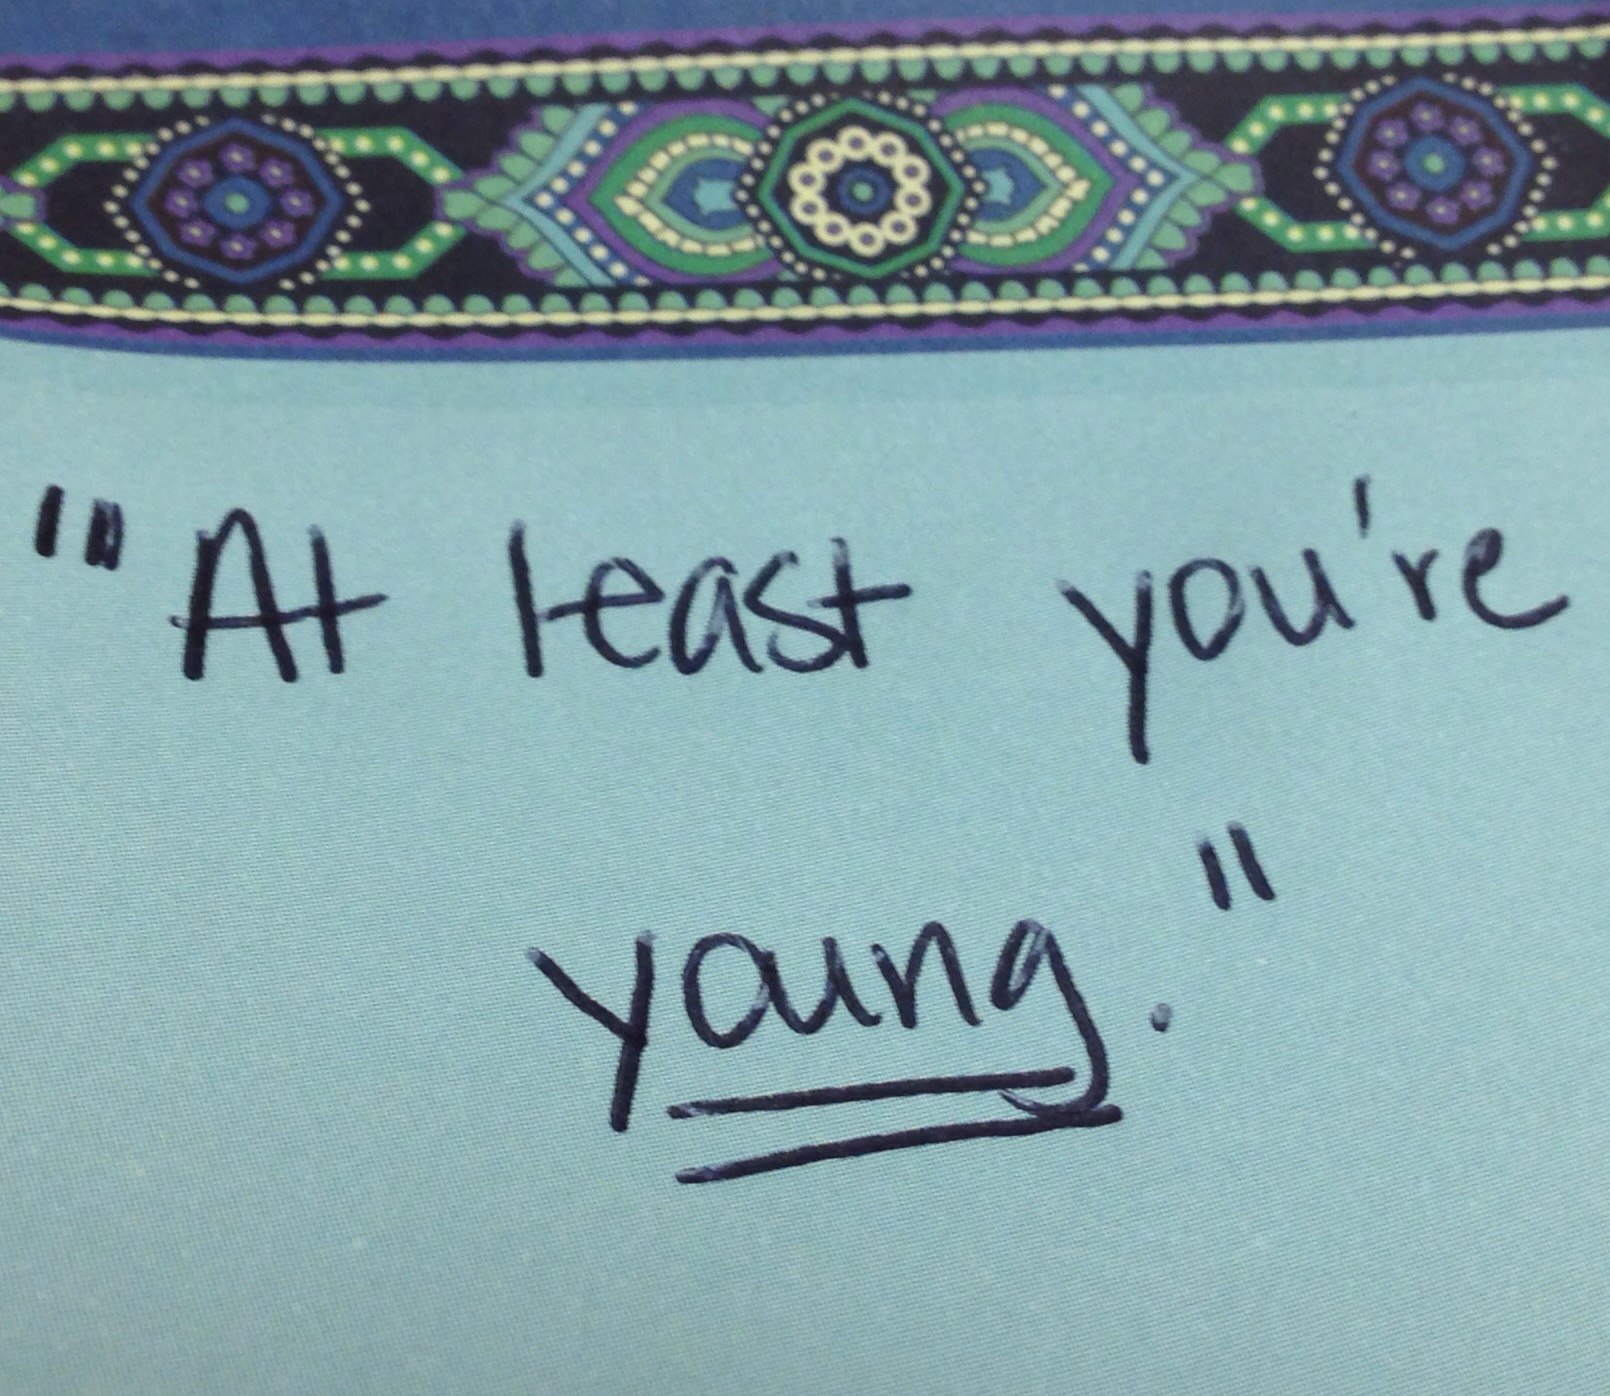 "At least you're
young."